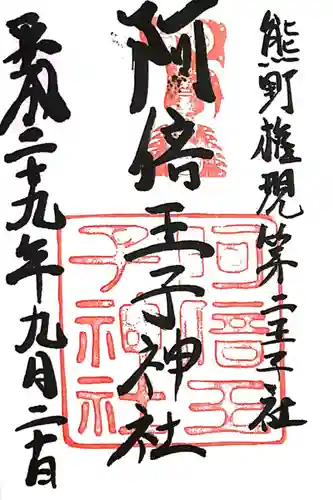 熊野権現第二王子社
阿倍王子神社
平成二十九年九月二十日
阿倍王
子神社